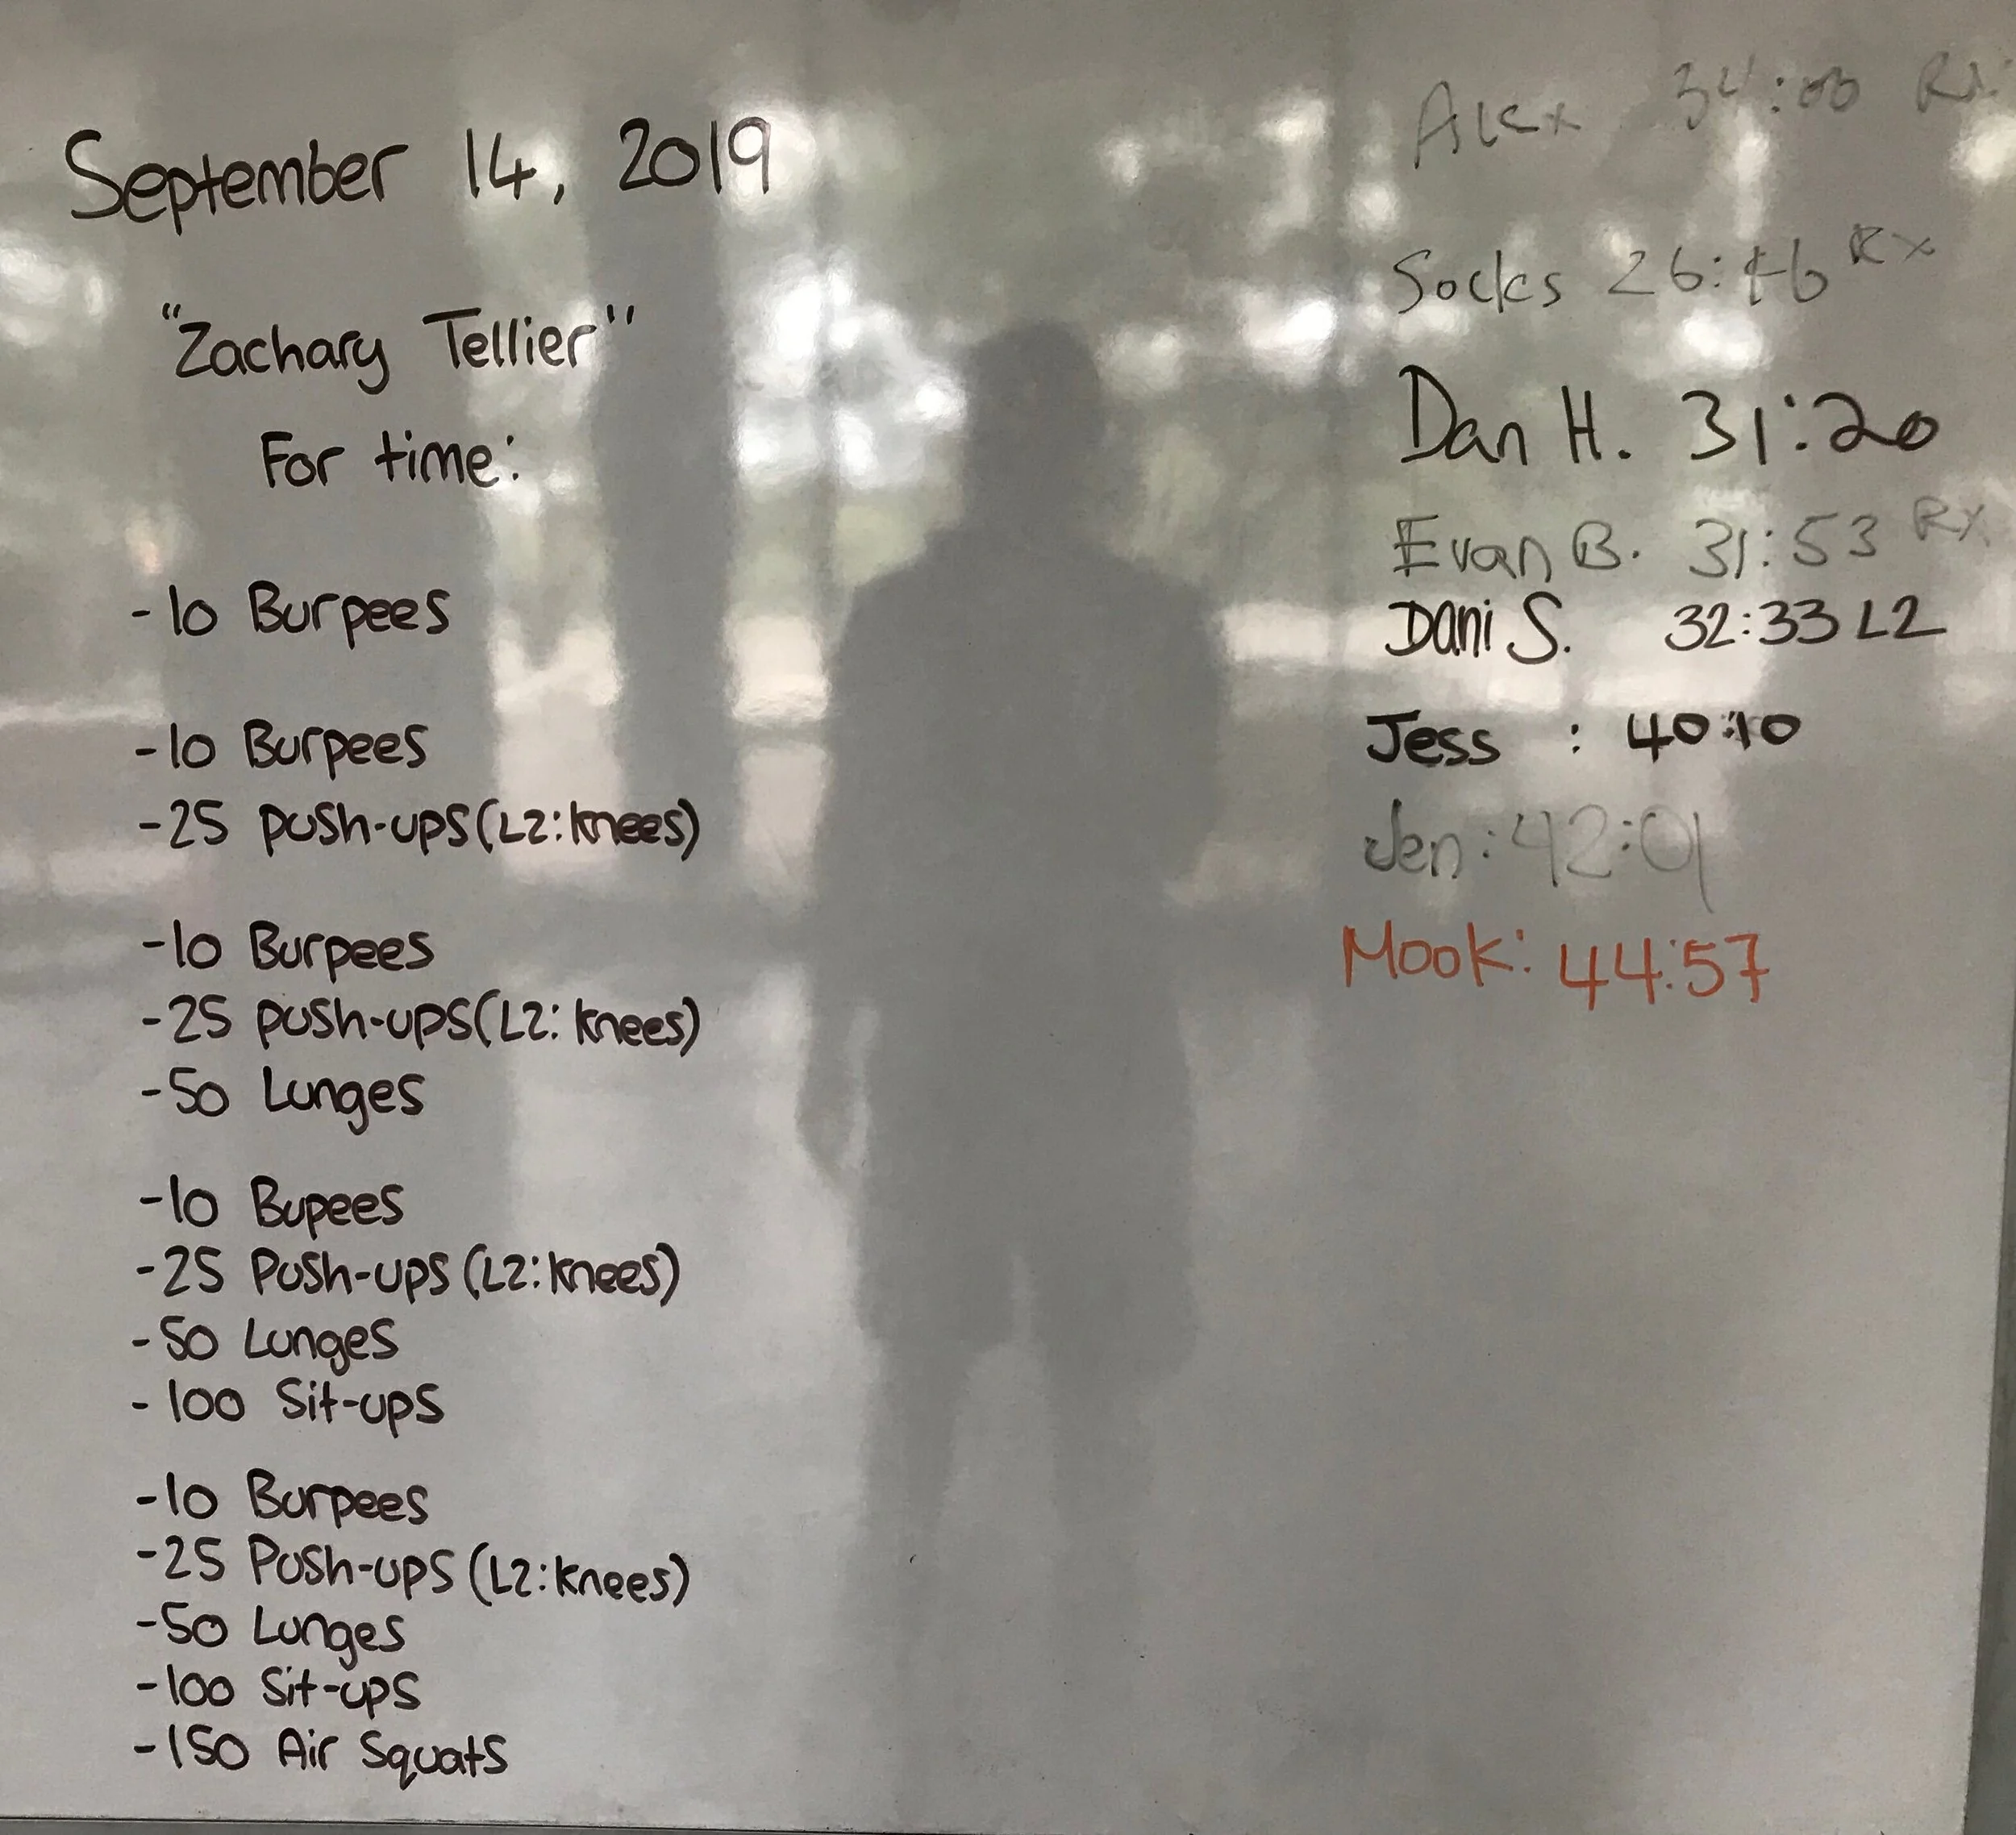 September 14, 2019
"Zachary Tellier"
For time:
-10 Burpees
-10 Burpees
-25 push-ups (L2: knees)
-10 Burpees
-25 push-ups (L2: knees)
-50 Lunges
-10 Bupees
-25 Push-ups (L2: knees)
-50 Lunges
-100 Sit-ups
-10 Burpees
-25 Push-ups (L2: knees)
-50 Lunges
-100 Sit-ups
-150 Air Squats
Alex 34:00 Rx
Socks 26:46 Rx
Dan H. 31:20
Evan B. 31:53 Rx
Dani S. 32:33 L2
Jess : 40:10
Jen: 42:01
Mook: 44:57